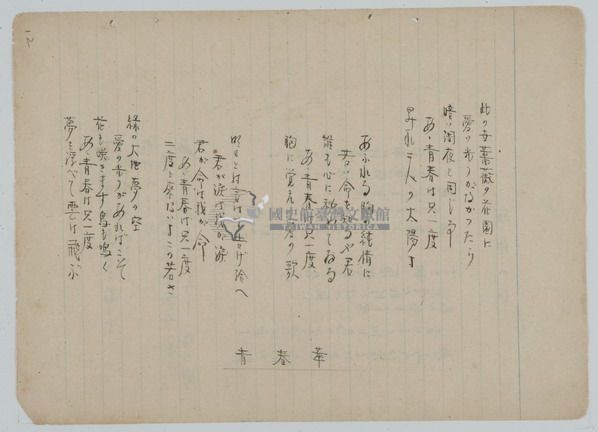 此の世薔薇の花園に
愛の光りがなかったら
暗い闇夜と同じ事
あゝ青春は只一度
昇れ二人の太陽よ
あふれる胸の純情に
若い命を知るや君
誰も心に秘めてゐる
あゝ青春は只一度
胸に覚えの君の歌
君が涙は我が涙
君が命は我が命
あゝ青春は只一度
二度と来ないよこの若さ
緑の大地夢の空
愛の光りがあればこそ
花も咲きます鳥も鳴く
あゝ青春は只一度
夢を浮べて雲は飛ぶ
青春華
國史館臺灣文獻館
TAIWAN HISTORICA